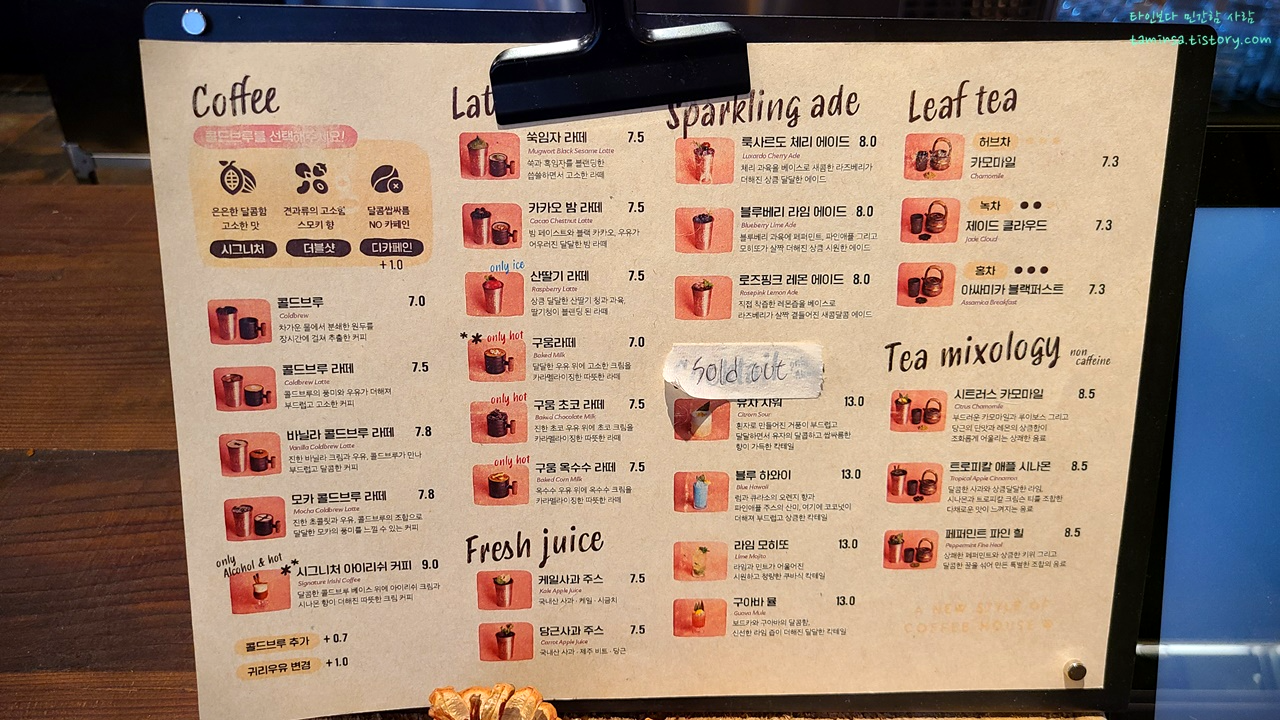 타인보다 민감한 사람
taminsa.tistory.com
Coffee
콜드브루를 선택해주세요!
은은한 달콤함
고소한 맛
시그니처
견과류의 고소함
스모키 향
더블샷
달콤쌉싸름
NO 카페인
디카페인
+1.0
콜드브루 7.0
Coldbrew
차가운 물에서 분쇄한 원두를
장시간에 걸쳐 추출한 커피
콜드브루 라떼 7.5
Coldbrew Latte
콜드브루의 풍미와 우유가 더해져
부드럽고 고소한 커피
바닐라 콜드브루 라떼 7.8
Vanilla Coldbrew Latte
진한 바닐라 크림과 우유, 콜드브루가 만나
부드럽고 달콤한 커피
모카 콜드브루 라떼 7.8
Mocha Coldbrew Latte
진한 초콜릿과 우유, 콜드브루의 조합으로
달달한 모카의 풍미를 느낄 수 있는 커피
only
Alcohol & hot
**시그니처 아이리쉬 커피 9.0
Signature Irishi Coffee
달콤한 콜드브루 베이스 위에 아이리쉬 크림과
시나몬 향이 더해진 따뜻한 크림 커피
콜드브루 추가 +0.7
귀리우유 변경 +1.0
Lat
쑥임자 라떼 7.5
Mugwort Black Sesame Latte
쑥과 흑임자를 블렌딩한
쌉쌀하면서 고소한 라떼
카카오 밤 라떼 7.5
Cacao Chestnut Latte
밤 페이스트와 블랙 카카오, 우유가
어우러진 달달한 밤 라떼
only ice
산딸기 라떼 7.5
Raspberry Latte
상큼 달달한 산딸기 청과 과육,
딸기청이 블렌딩 된 라떼
** only hot
구움라떼 7.0
Baked Milk
달달한 우유 위에 고소한 크림을
카라멜라이징한 따뜻한 라떼
only hot
구움 초코 라떼 7.5
Baked Chocolate Milk
진한 초코 우유 위에 초코 크림을
카라멜라이징한 따뜻한 라떼
only hot
구움 옥수수 라떼 7.5
Baked Corn Milk
옥수수 우유 위에 옥수수 크림을
카라멜라이징한 따뜻한 라떼
Fresh juice
케일사과 주스 7.5
Kale Apple Juice
국내산 사과 · 케일 · 시금치
당근사과 주스 7.5
Carrot Apple Juice
국내산 사과 · 제주 비트 · 당근
Sparkling ade
룩사르도 체리 에이드 8.0
Luxardo Cherry Ade
체리 과육을 베이스로 새콤한 라즈베리가
더해진 상큼 달달한 에이드
블루베리 라임 에이드 8.0
Blueberry Lime Ade
블루베리 과육에 페퍼민트, 파인애플 그리고
모히또가 살짝 더해진 상큼 시원한 에이드
로즈핑크 레몬 에이드 8.0
Rosepink Lemon Ade
직접 착즙한 레몬즙을 베이스로
라즈베리가 살짝 곁들어진 새콤달콤 에이드
Sold out
유자 사워 13.0
Citron Sour
흰자로 만들어진 거품이 부드럽고
달달하면서 유자의 달콤하고 쌉싸름한
향이 가득한 칵테일
블루 하와이 13.0
Blue Hawaii
럼과 큐라소의 오렌지 향과
파인애플 주스의 산미, 여기에 코코넛이
더해져 부드럽고 상큼한 칵테일
라임 모히또 13.0
Lime Mojito
라임과 민트가 어울어진
시원하고 청량한 쿠바식 칵테일
구아바 뮬 13.0
Guava Mule
보드카와 구아바의 달콤함,
신선한 라임 즙이 더해진 달달한 칵테일
Leaf tea
허브차
카모마일 7.3
Chamomile
녹차
제이드 클라우드 7.3
Jade Cloud
홍차
아싸미카 블랙퍼스트 7.3
Assamica Breakfast
Tea mixology non caffeine
시트러스 카모마일 8.5
Citrus Chamomile
부드러운 카모마일과 루이보스 그리고
당근의 단맛과 레몬의 상큼함이
조화롭게 어울리는 상쾌한 음료
트로피칼 애플 시나몬 8.5
Tropical Apple Cinnamon
달콤한 사과와 상큼달달한 라임,
시나몬과 트로피칼 크림슨 티를 조합한
다채로운 맛이 느껴지는 음료
페퍼민트 파인 힐 8.5
Peppermint Pine Heal
상쾌한 페퍼민트와 상큼한 키위 그리고
달콤한 꿀을 섞어 만든 특별한 조합의 음료
A NEW STYLE OF
COFFEE HOUSE